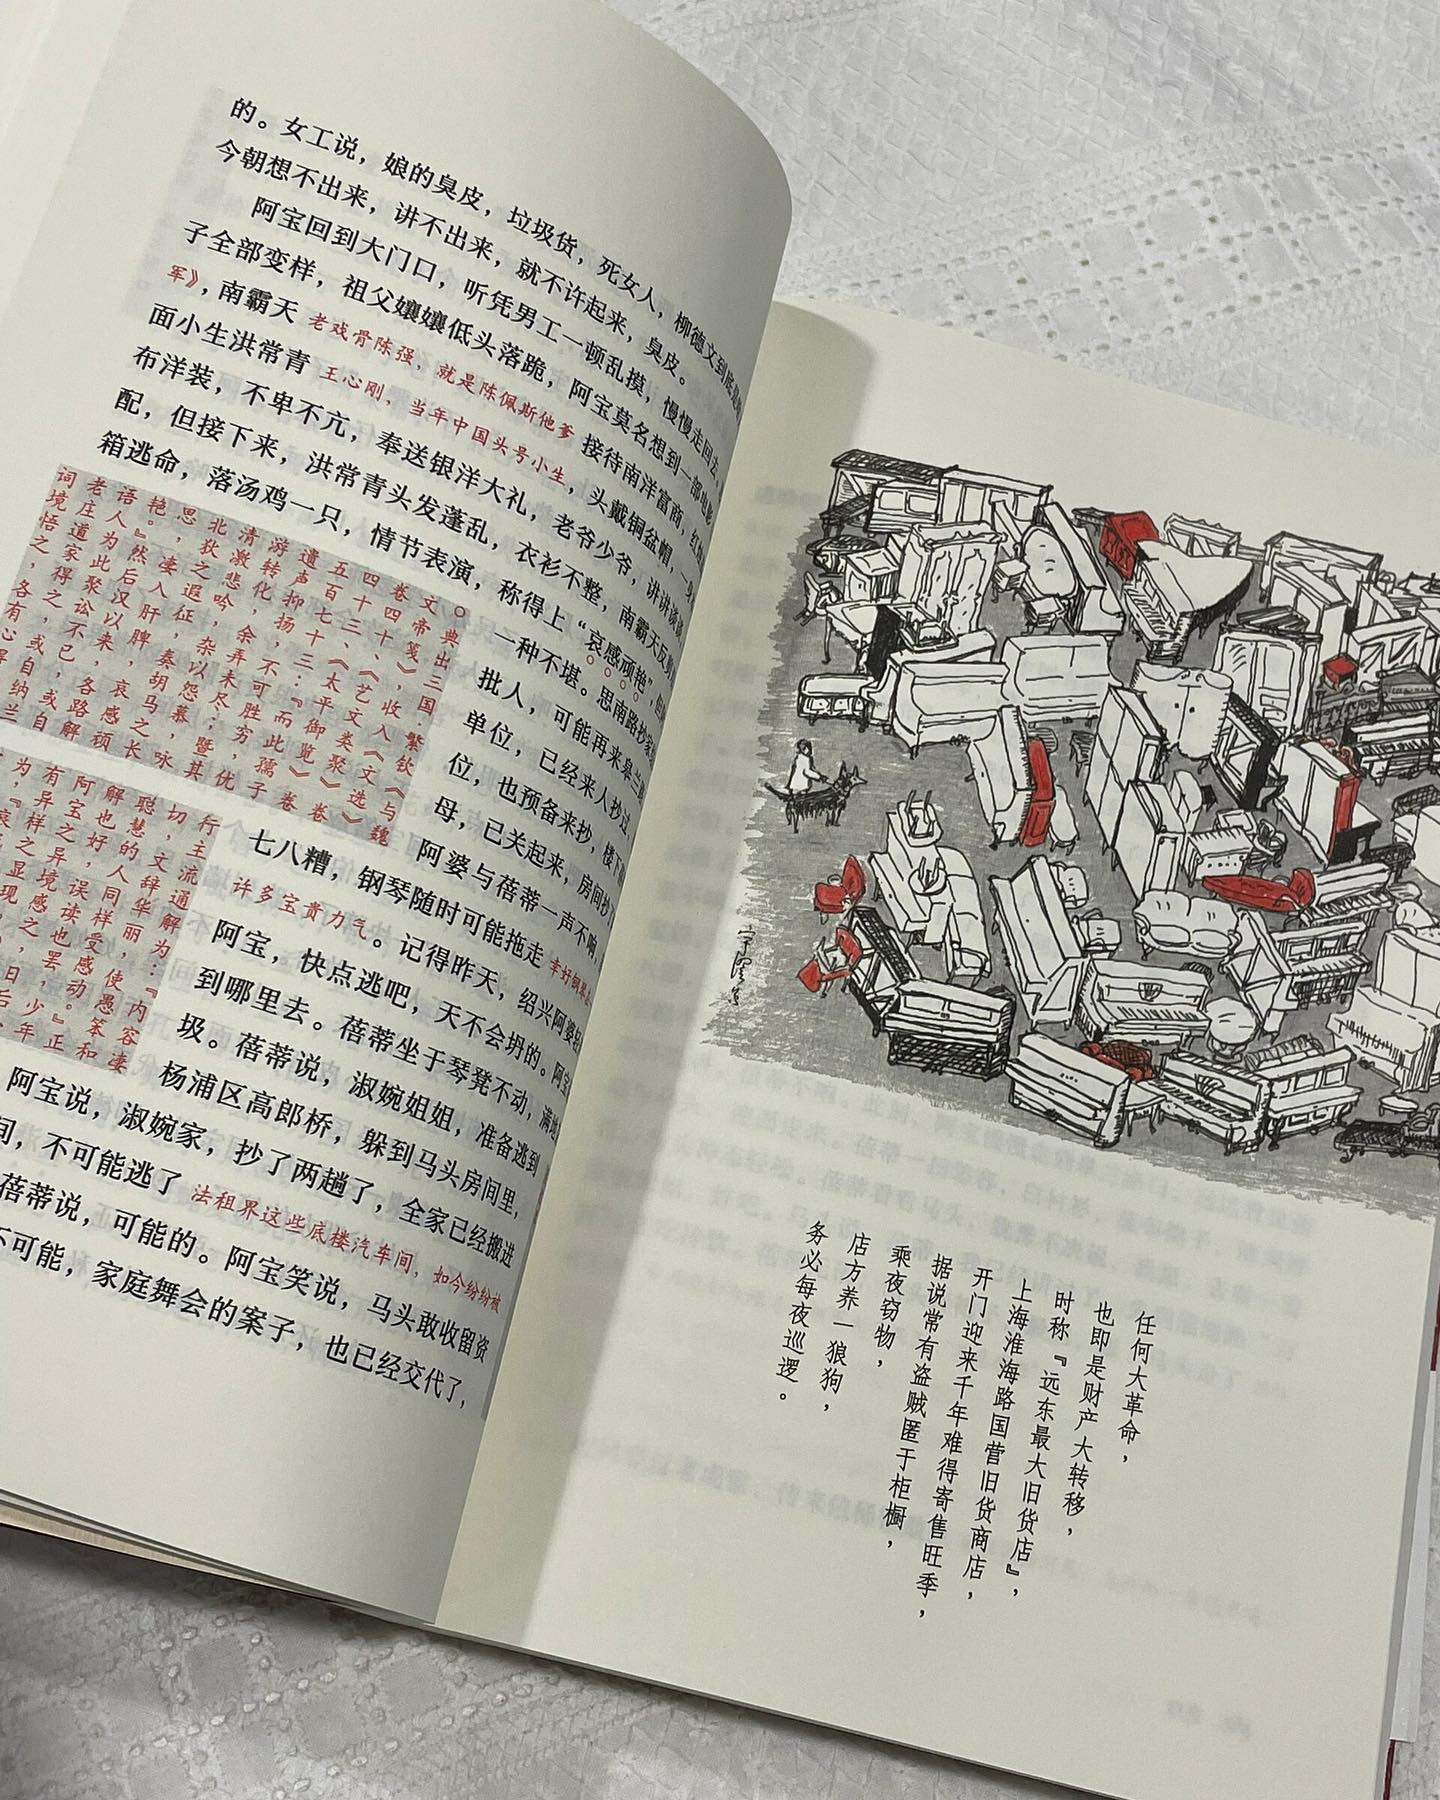 的。女工说，娘的臭皮，垃圾货，死女人，柳德文到底是
今朝想不出来，讲不出来，就不许起来，臭皮。
阿宝回到大门口，听凭男工一顿乱摸，慢慢走回去。
子全部变样，祖父孃孃低头落跪，阿宝莫名想到一部电影
军》，南霸天 老戏骨陈强，就是陈佩斯他爹 接待南洋富商，红
面小生洪常青 王心刚，当年中国头号小生，头戴铜盆帽，一身
布洋装，不卑不亢，奉送银洋大礼，老爷少爷，讲讲谈谈
配，但接下来，洪常青头发蓬乱，衣衫不整，南霸天反
箱逃命，落汤鸡一只，情节表演，称得上“哀感顽艳”，但
一种不堪。思南路抄家
批人，可能再来皋兰
单位，已经来人抄过
位，也预备来抄，楼下
母，已关起来，房间抄
阿婆与蓓蒂一声不响
七八糟，钢琴随时可能拖走 幸好钢琴
许多宝贵力气。记得昨天，绍兴阿婆
阿宝，快点逃吧，天不会坍的。阿宝
到哪里去。蓓蒂坐于琴凳不动，满地
圾。蓓蒂说，淑婉姐姐，准备逃到
杨浦区高郎桥，躲到马头房间里，
阿宝说，淑婉家，抄了两趟了，全家已经搬进
间，不可能逃了 法租界这些底楼汽车间，如今纷纷被
蓓蒂说，可能的。阿宝笑说，马头敢收留资
不可能，家庭舞会的案子，也已经交代了，
。典出三国·繁钦《与魏
文帝笺》，收入《文选》卷
四十四、《艺文类聚》卷
四十三、《太平御览》卷
五百七十三：『而此孺子
遗声抑扬，不可胜穷，优
游转化，余弄未尽；暨其
清激悲吟，杂以怨慕，咏
北狄之遐征，奏胡马之长
思，凄入肝脾，哀感顽
艳。』然后汉以来，各路
语人为此聚讼不已，或解
老庄道家得之，或自
词境悟之，各有心得
行，主流通解为：『内容凄
切，文辞华丽，使愚笨和
聪慧的人同样受感动。』正
解也好，误读也罢，少年
任何大革命，
也即是财产大转移，
时称『远东最大旧货店』，
上海淮海路国营旧货商店，
开门迎来千年难得寄售旺季，
据说常有盗贼匿于柜橱，
乘夜窃物，
店方养一狼狗，
务必每夜巡逻。